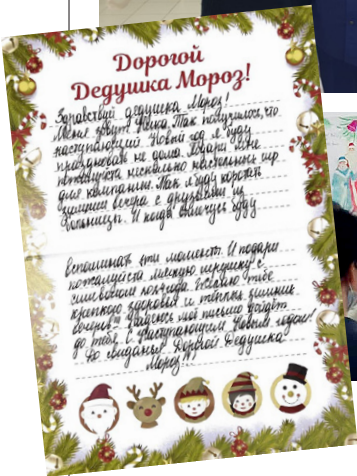 Дорогой
Дедушка Мороз!
Здравствуй дедушка Мороз!
Меня зовут Так получилось, что
наступающий Новый год я буду
праздновать не дома. Подари мне
пожалуйста несколько настольных игр
для компании. Так я буду коротать
зимние вечера с друзьями из
больницы. И когда вылечусь буду
вспоминать эти моменты. И подари
пожалуйста мягкую игрушку с
символом года. Желаю тебе
крепкого здоровья и тёплых зимних
вечеров. Надеюсь моё письмо дойдёт
до тебя. С Наступающим Новым годом!
До свидания! Дорогой Дедушка
Мороз!